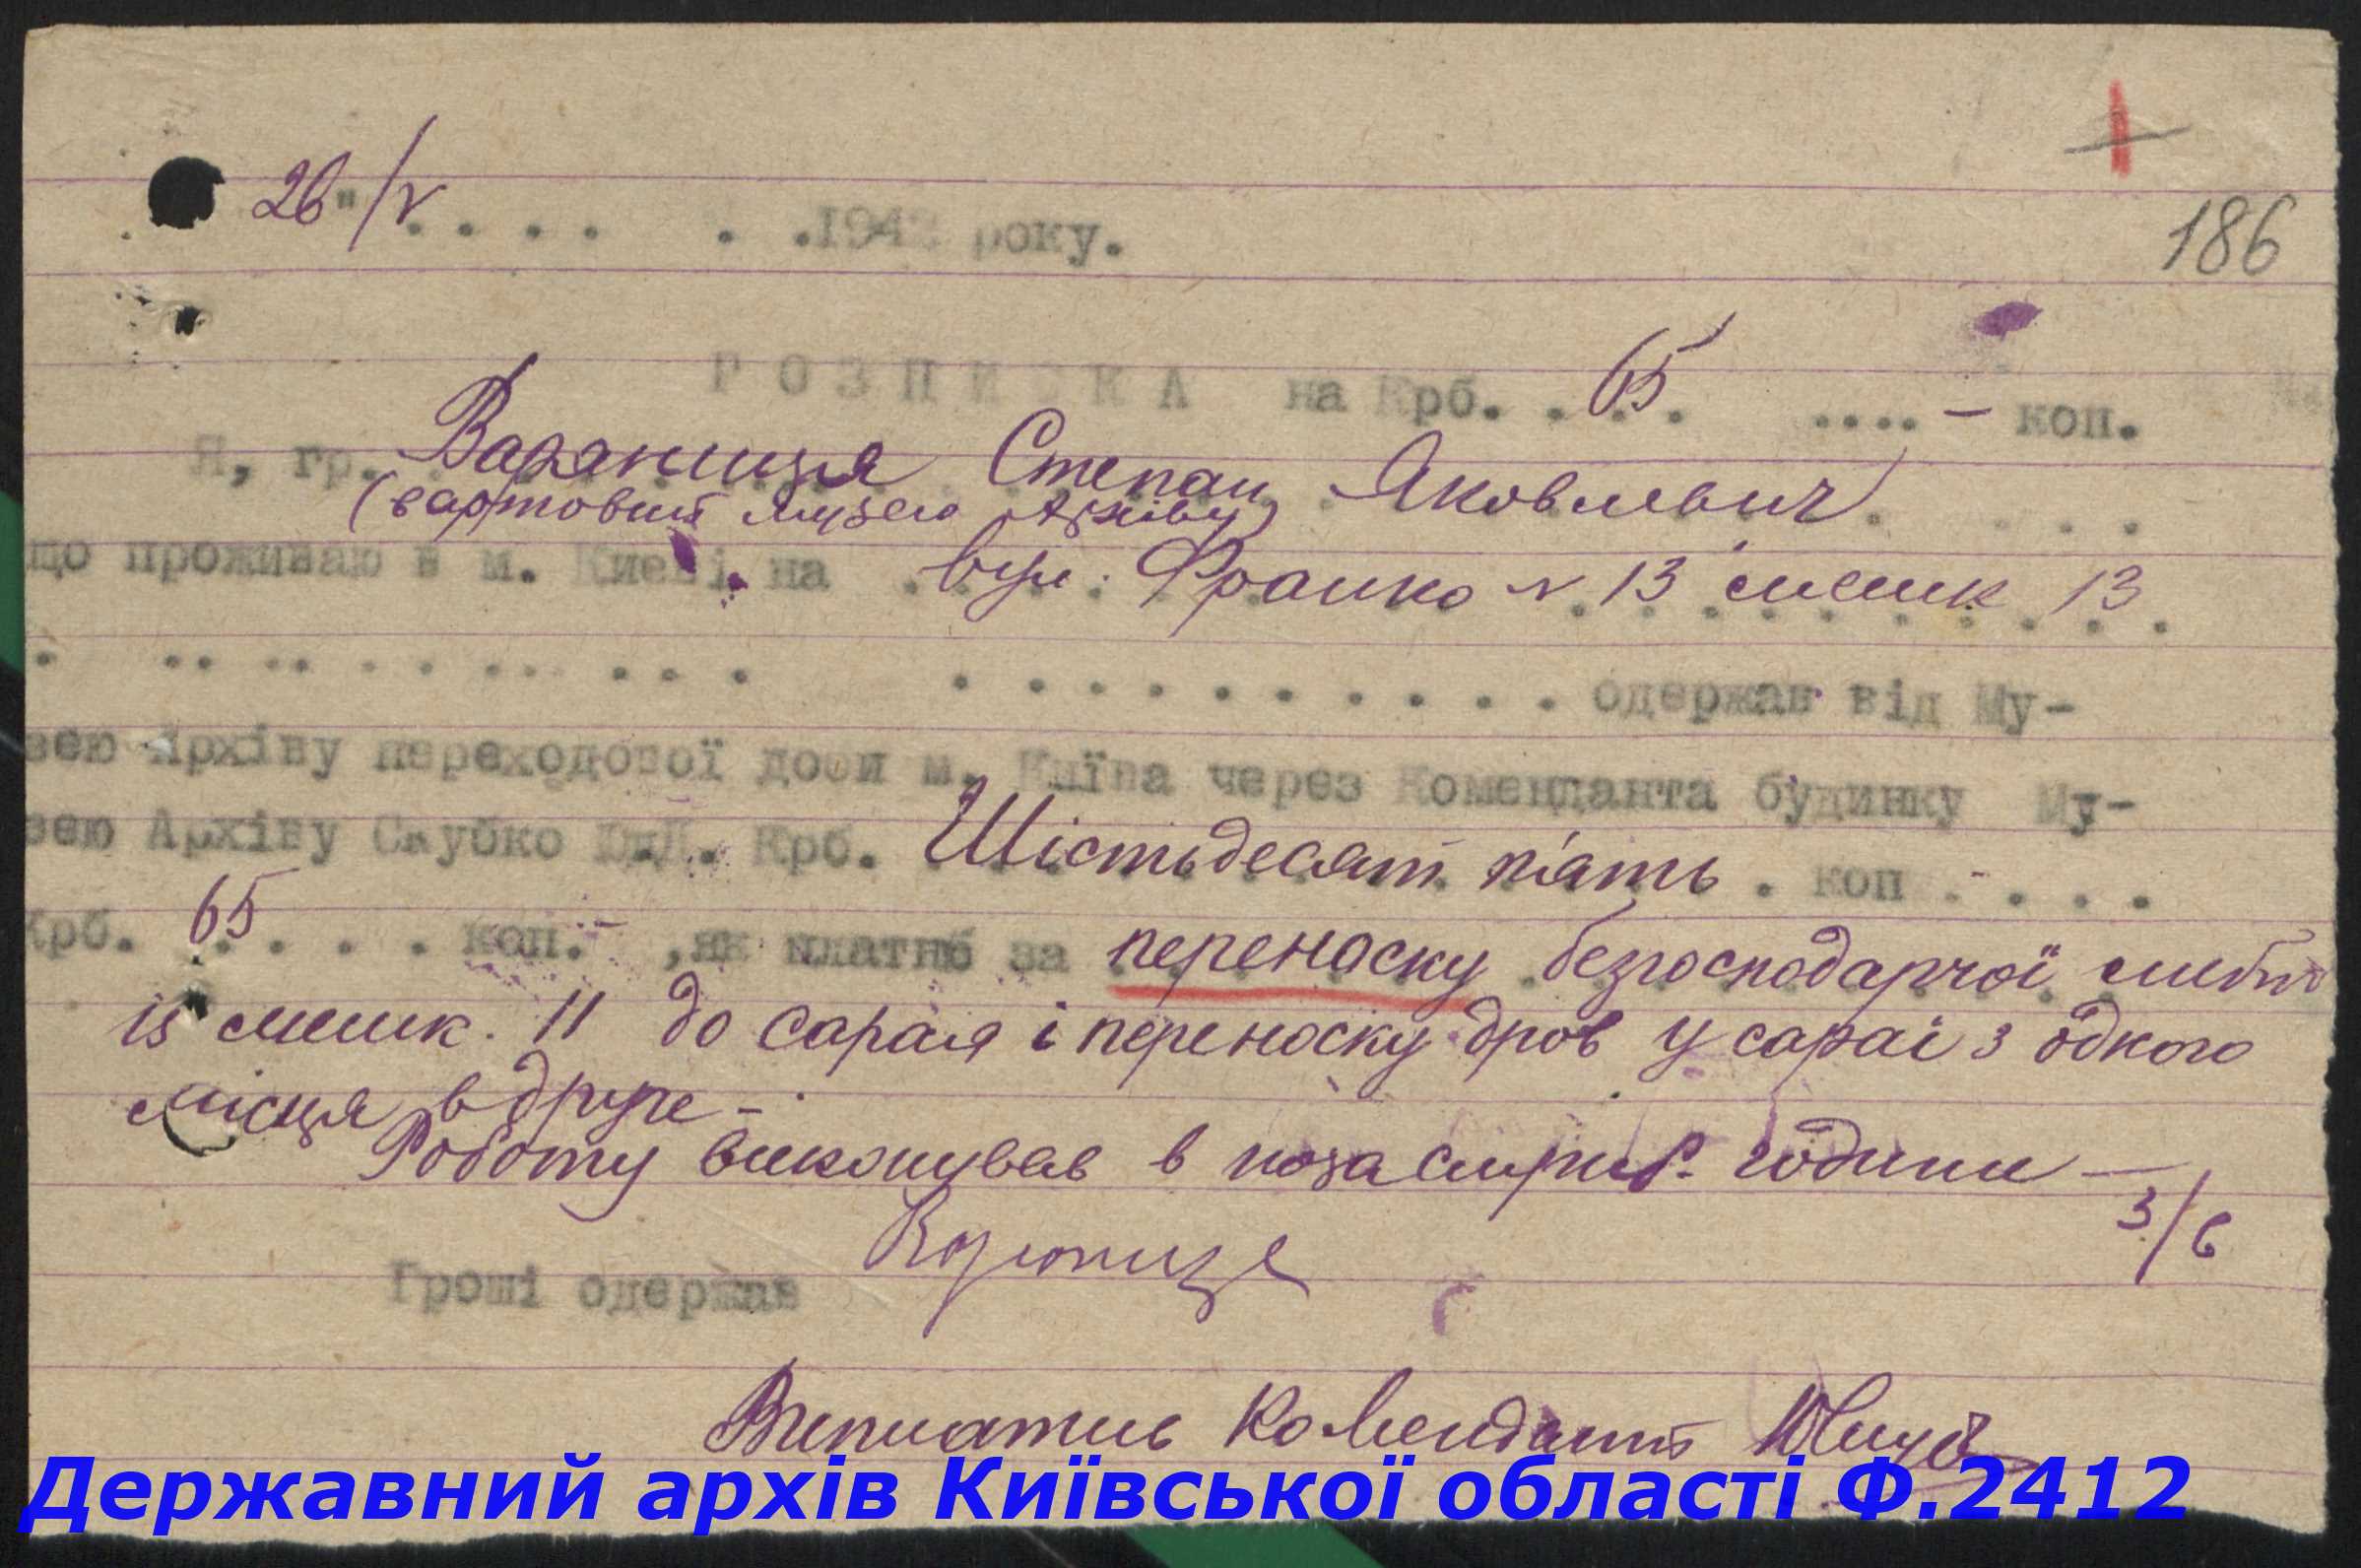 26"/V . . . . . . 1942 року.
186
РОЗПИСКА на Крб. . 65 . . .... – коп.
Я, гр. Вараниця Степан Яковлевич
(вартовий музею Архіву)
що проживаю в м. Києві на вул. Франко N 13 мешк 13
одержав від Му-
зею Архіву переходової доби м. Київа через Коменданта будинку Му-
зею Архіву Скубко Крб. Шістьдесят пять . коп - . . .
Крб. 65 . . . . коп. – ,як платню за переноску безгосподарчої
із мешк. 11 до сарая і переноску дров у сараї з одного
місця в друге –
Роботу виконував в позаслужб. години —
3/6
Гроші одержав
Виплатив Комендант
Державний архів Київської області Ф.2412